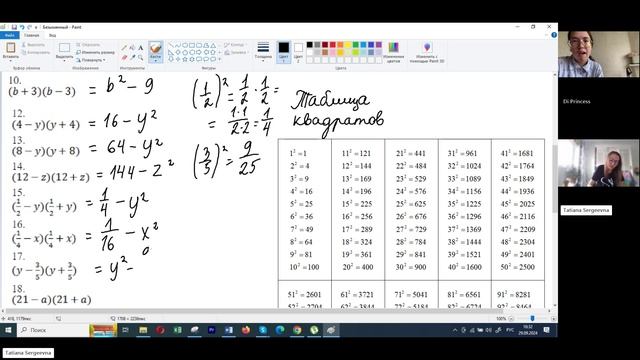 Безымянный - Paint
Вставить
Выделить
Изменить размер
Кисти
Изменение цветов
Изменить с помощью Paint 3D
Изображение
Фигуры
Цвета
10.
(b + 3)(b − 3) = b² − 9
12.
(4 − y)(y + 4) = 16 − y²
13.
(8 − y)(y + 8) = 64 − y²
14.
(12 − z)(12 + z) = 144 − z²
15.
(1/2 − y)(1/2 + y) = 1/4 − y²
16.
(1/4 − x)(1/4 + x) = 1/16 − x²
17.
(y − 3/5)(y + 3/5) = y² −
18.
(21 − a)(21 + a)
(1/2)² = 1/2 · 1/2 =
= 1·1/2·2 = 1/4
(3/5)² = 9/25
Таблица
квадратов
1² = 1 11² = 121 21² = 441 31² = 961 41² = 1681
2² = 4 12² = 144 22² = 484 32² = 1024 42² = 1764
3² = 9 13² = 169 23² = 529 33² = 1089 43² = 1849
4² = 16 14² = 196 24² = 576 34² = 1156 44² = 1936
5² = 25 15² = 225 25² = 625 35² = 1225 45² = 2025
6² = 36 16² = 256 26² = 676 36² = 1296 46² = 2116
7² = 49 17² = 289 27² = 729 37² = 1369 47² = 2209
8² = 64 18² = 324 28² = 784 38² = 1444 48² = 2304
9² = 81 19² = 361 29² = 841 39² = 1521 49² = 2401
10² = 100 20² = 400 30² = 900 40² = 1600 50² = 2500
51² = 2601 61² = 3721 71² = 5041 81² = 6561 91² = 8281
Di Princess
Tatiana Sergeevna
100%
Поиск
РУС
10:32
29.09.2024
Tatiana Sergeevna